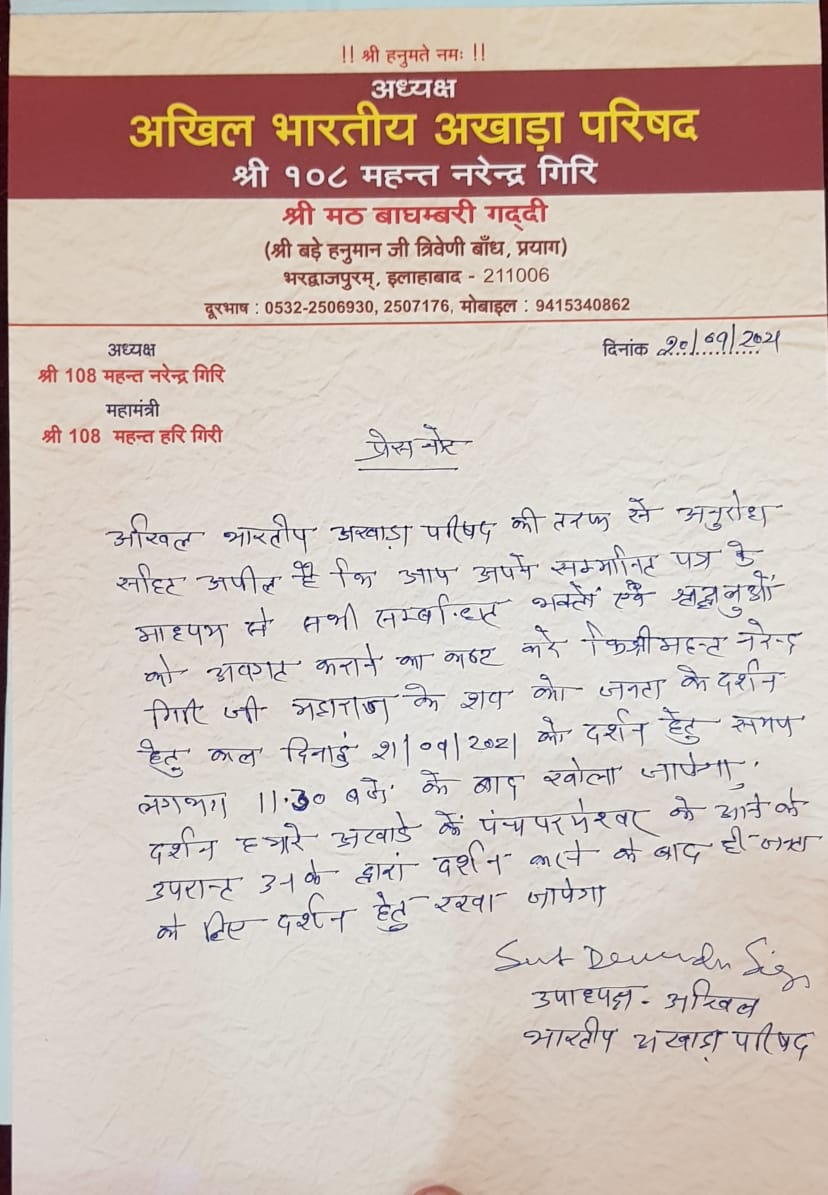 !! श्री हनुमते नमः !!
अध्यक्ष
अखिल भारतीय अखाड़ा परिषद
श्री १०८ महन्त नरेन्द्र गिरि
श्री मठ बाघम्बरी गद्दी
(श्री बड़े हनुमान जी त्रिवेणी बाँध, प्रयाग)
भरद्वाजपुरम्, इलाहाबाद - 211006
दूरभाष : 0532-2506930, 2507176, मोबाइल : 9415340862
दिनांक 20/09/2021
अध्यक्ष
श्री 108 महन्त नरेन्द्र गिरि
महामंत्री
श्री 108 महन्त हरि गिरी
प्रेस नोट
अखिल भारतीय अखाड़ा परिषद की तरफ से अनुरोध
सहित अपील है कि आप अपने सम्मानित पत्र के
माध्यम से सभी सम्बंधित भक्तों एवं श्रद्धालुओं
को अवगत कराने का कष्ट करे कि श्री महन्त नरेन्द्र
गिरि जी महाराज के शव को जनता के दर्शन
हेतु कल दिनांक 21/09/2021 को दर्शन हेतु समय
लगभग 11.30 बजे के बाद खोला जायेगा,
दर्शन हमारे अखाडे के पंच परमेश्वर के आने के
उपरान्त उनके द्वारा दर्शन करने के बाद ही जनता
के लिए दर्शन हेतु रखा जायेगा
उपाध्यक्ष - अखिल
भारतीय अखाड़ा परिषद